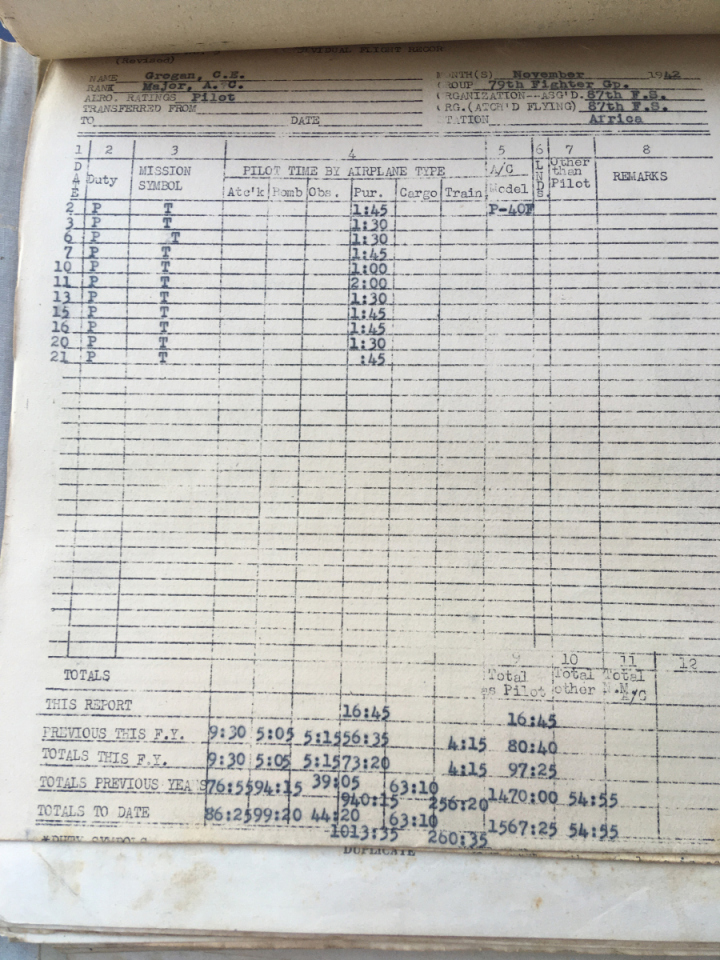 (Revised)
INDIVIDUAL FLIGHT RECORD
NAME Grogan, C.E. MONTH(S) November 1942
RANK Major, A. C. GROUP 79th Fighter Gp.
AERO. RATINGS Pilot ORGANIZATION--ASG'D. 87th F.S.
TRANSFERRED FROM ORG.(ATCH'D FLYING) 87th F.S.
TO DATE STATION Africa
1 2 3 4 5 6 7 8
DATE Duty MISSION SYMBOL PILOT TIME BY AIRPLANE TYPE A/C Model LNDS. Other than Pilot REMARKS
Atc'k Bomb Obs. Pur. Cargo Train
2 P T 1:45 P-40F
3 P T 1:30
6 P T 1:30
7 P T 1:45
10 P T 1:00
11 P T 2:00
13 P T 1:30
15 P T 1:45
16 P T 1:45
20 P T 1:30
21 P T :45
9 10 11 12
TOTALS Total as Pilot Total other Total N.M. A/C
THIS REPORT 16:45 16:45
PREVIOUS THIS F.Y. 9:30 5:05 5:15 56:35 4:15 80:40
TOTALS THIS F.Y. 9:30 5:05 5:15 73:20 4:15 97:25
TOTALS PREVIOUS YEARS 76:55 94:15 39:05 940:15 63:10 256:20 1470:00 54:55
TOTALS TO DATE 86:25 99:20 44:20 1013:35 63:10 260:35 1567:25 54:55
*DUTY SYMBOLS
DUPLICATE